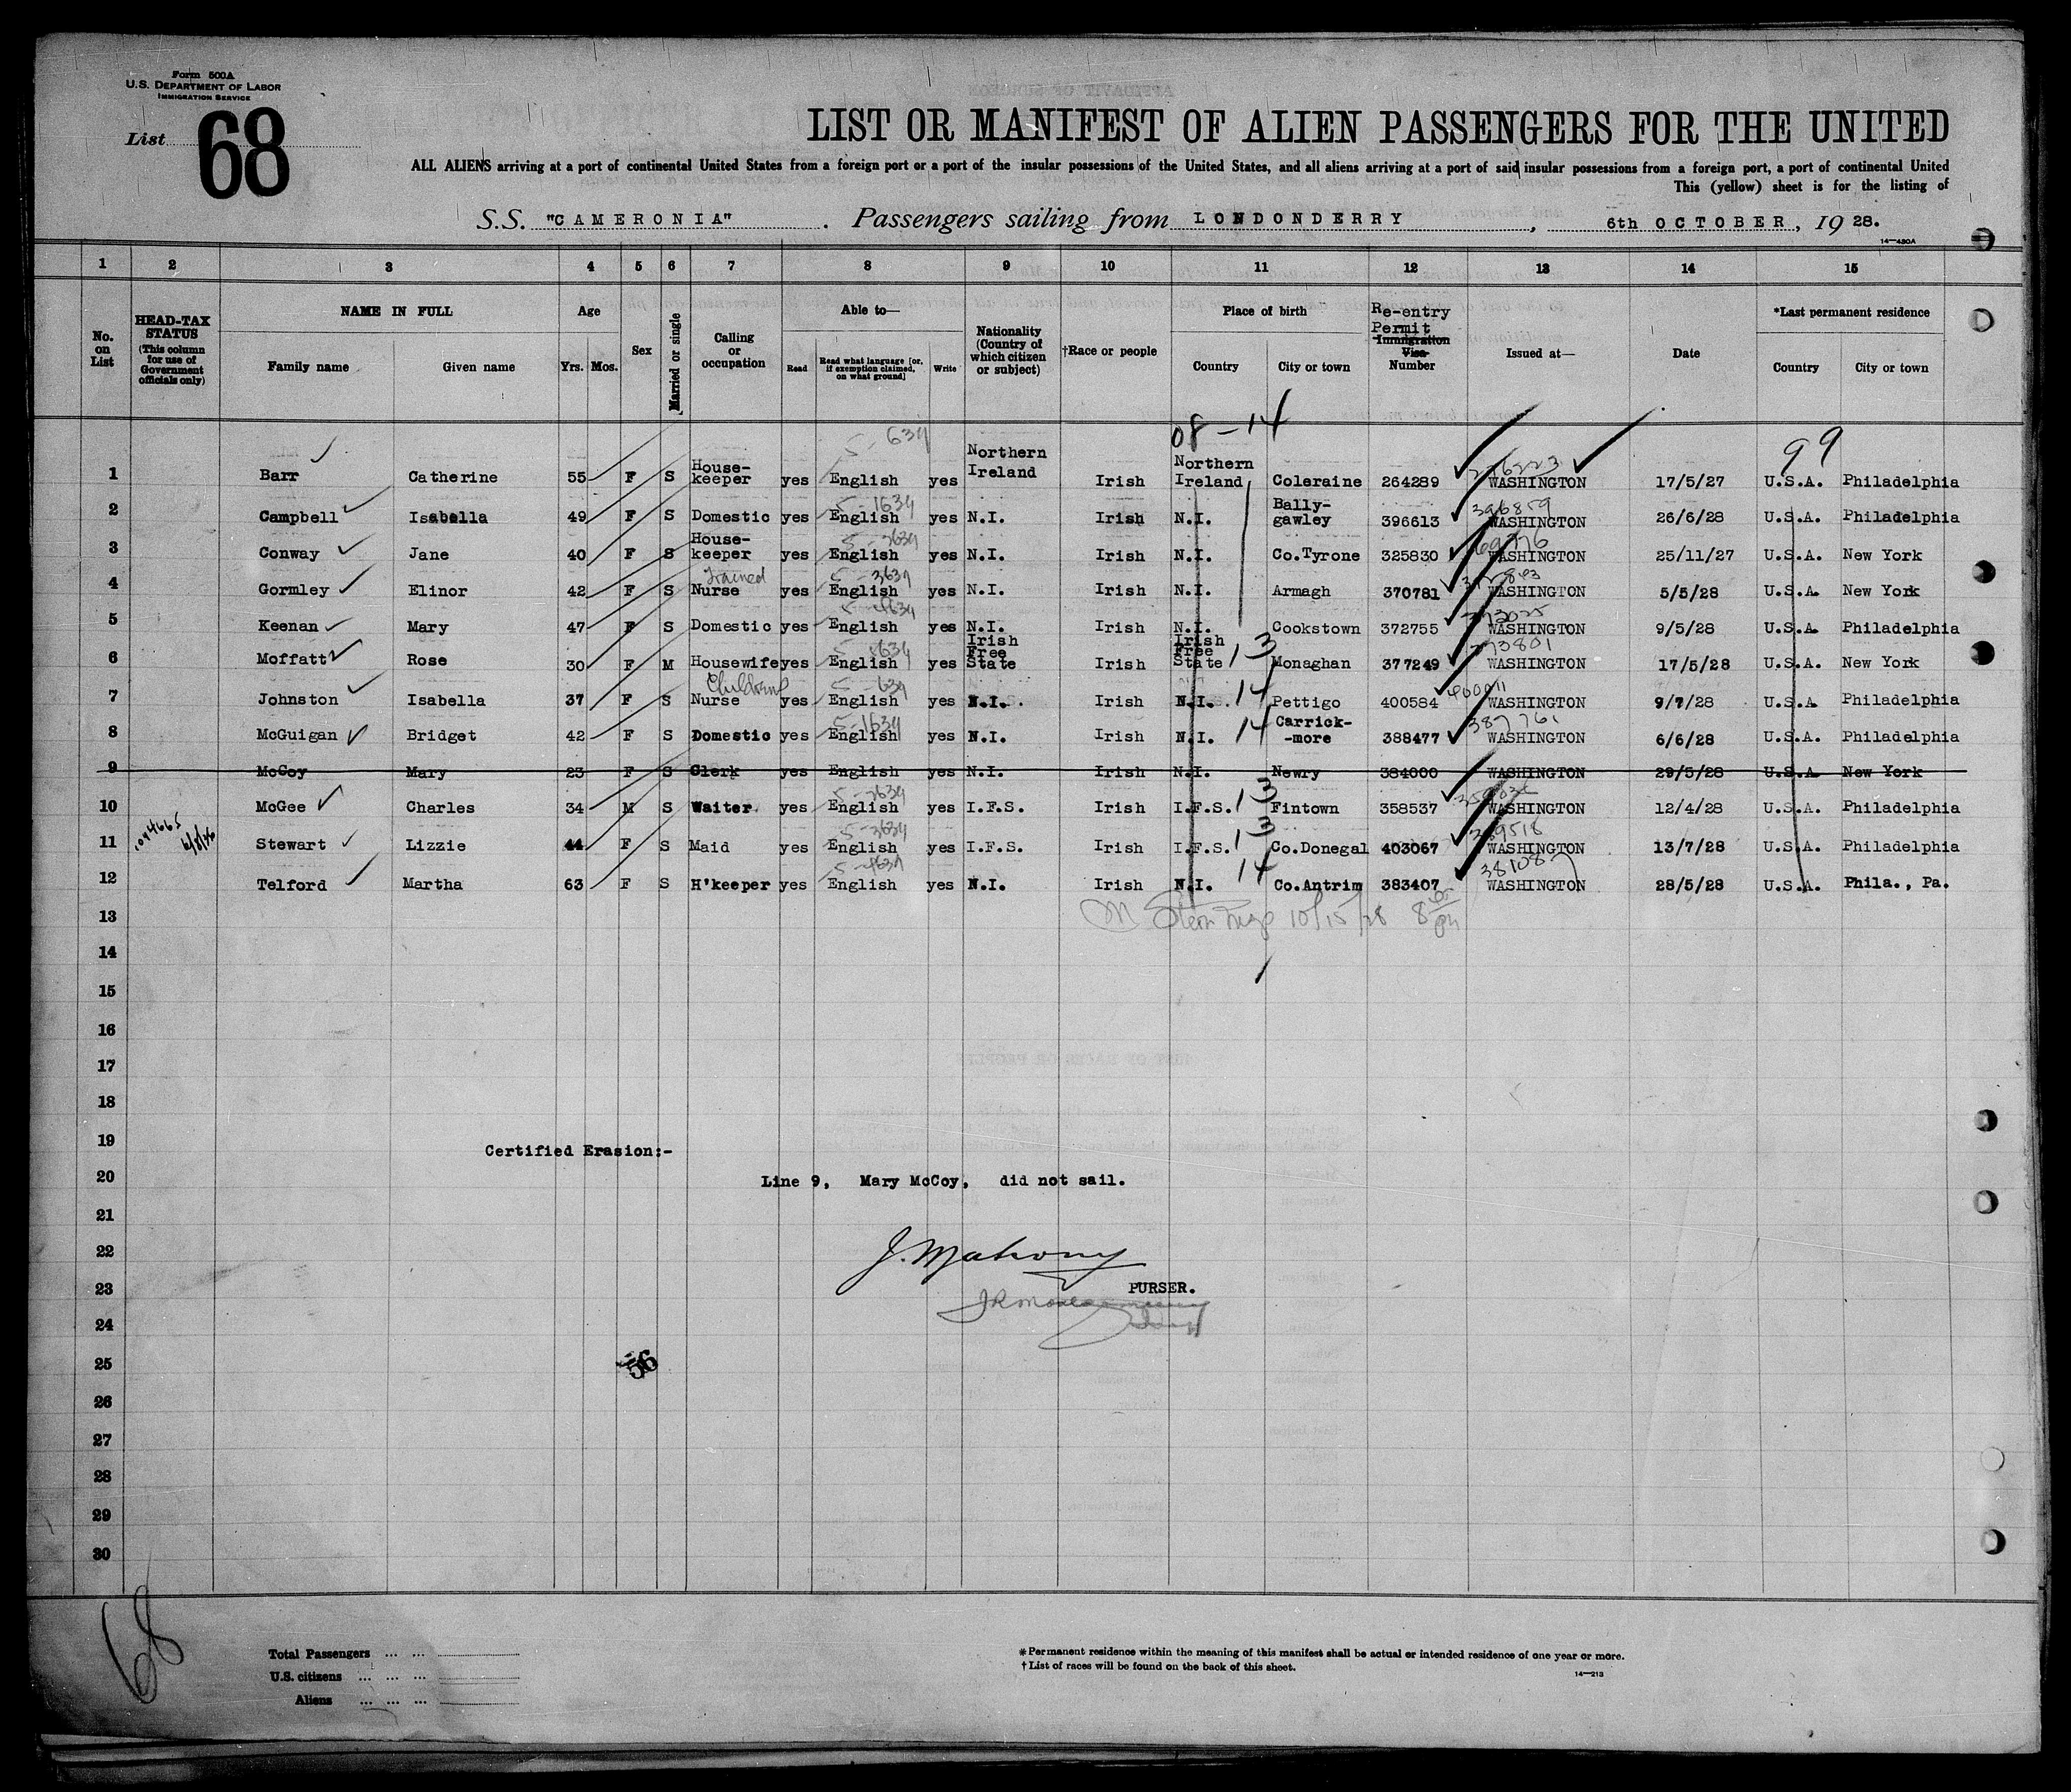 Form 500A
U.S. DEPARTMENT OF LABOR
IMMIGRATION SERVICE
List 68
LIST OR MANIFEST OF ALIEN PASSENGERS FOR THE UNITED
ALL ALIENS arriving at a port of continental United States from a foreign port or a port of the insular possessions of the United States, and all aliens arriving at a port of said insular possessions from a foreign port, a port of continental United
This (yellow) sheet is for the listing of
S.S. "CAMERONIA" . Passengers sailing from LONDONDERRY , 6th OCTOBER , 19 28.
14—480A
1 2 3 4 5 6 7 8 9 10 11 12 13 14 15
No. on List
HEAD-TAX STATUS (This column for use of Government officials only)
NAME IN FULL
Family name Given name
Age
Yrs. Mos.
Sex
Married or single
Calling or occupation
Able to—
Read Read what language [or, if exemption claimed, on what ground] Write
Nationality (Country of which citizen or subject)
†Race or people
Place of birth
Country City or town
Re-entry Permit Immigration Visa Number
Issued at—
Date
*Last permanent residence
Country City or town
08-14
99
1 Barr Catherine 55 F S House-keeper yes English yes Northern Ireland Irish Northern Ireland Coleraine 264289 WASHINGTON 17/5/27 U.S.A. Philadelphia
2 Campbell Isabella 49 F S Domestic yes English yes N.I. Irish N.I. Bally-gawley 396613 WASHINGTON 26/6/28 U.S.A. Philadelphia
3 Conway Jane 40 F S House-keeper yes English yes N.I. Irish N.I. Co.Tyrone 325830 WASHINGTON 25/11/27 U.S.A. New York
4 Gormley Elinor 42 F S Trained Nurse yes English yes N.I. Irish N.I. Armagh 370781 WASHINGTON 5/5/28 U.S.A. New York
5 Keenan Mary 47 F S Domestic yes English yes N.I. Irish N.I. Cookstown 372755 WASHINGTON 9/5/28 U.S.A. Philadelphia
6 Moffatt Rose 30 F M Housewife yes English yes Irish Free State Irish Irish Free State 13 Monaghan 377249 WASHINGTON 17/5/28 U.S.A. New York
7 Johnston Isabella 37 F S Nurse yes English yes N.I. Irish N.I. 14 Pettigo 400584 WASHINGTON 9/7/28 U.S.A Philadelphia
8 McGuigan Bridget 42 F S Domestic yes English yes N.I. Irish N.I. 14 Carrick--more 388477 387761 WASHINGTON 6/6/28 U.S.A. Philadelphia
9 McCoy Mary 23 F S Clerk yes English yes N.I. Irish N.I. Newry 384000 WASHINGTON 29/5/28 U.S.A New York
10 McGee Charles 34 M S Waiter yes English yes I.F.S. Irish I.F.S. 13 Fintown 358537 WASHINGTON 12/4/28 U.S.A. Philadelphia
11 Stewart Lizzie 44 F S Maid yes English yes I.F.S. Irish I.F.S. 13 Co.Donegal 403067 WASHINGTON 13/7/28 U.S.A. Philadelphia
12 Telford Martha 63 F S H'keeper yes English yes N.I. Irish N.I. 14 Co.Antrim 383407 WASHINGTON 28/5/28 U.S.A. Phila., Pa.
13 10/15/28
14
15
16
17
18
19
Certified Erasion:-
20 Line 9, Mary McCoy, did not sail.
21
22 J. Mahony
23 PURSER.
24
25 56
26
27
28
29
30
68
Total Passengers ... ...
U.S. citizens ... ... ...
Aliens ... ... ...
* Permanent residence within the meaning of this manifest shall be actual or intended residence of one year or more.
† List of races will be found on the back of this sheet.
14—213